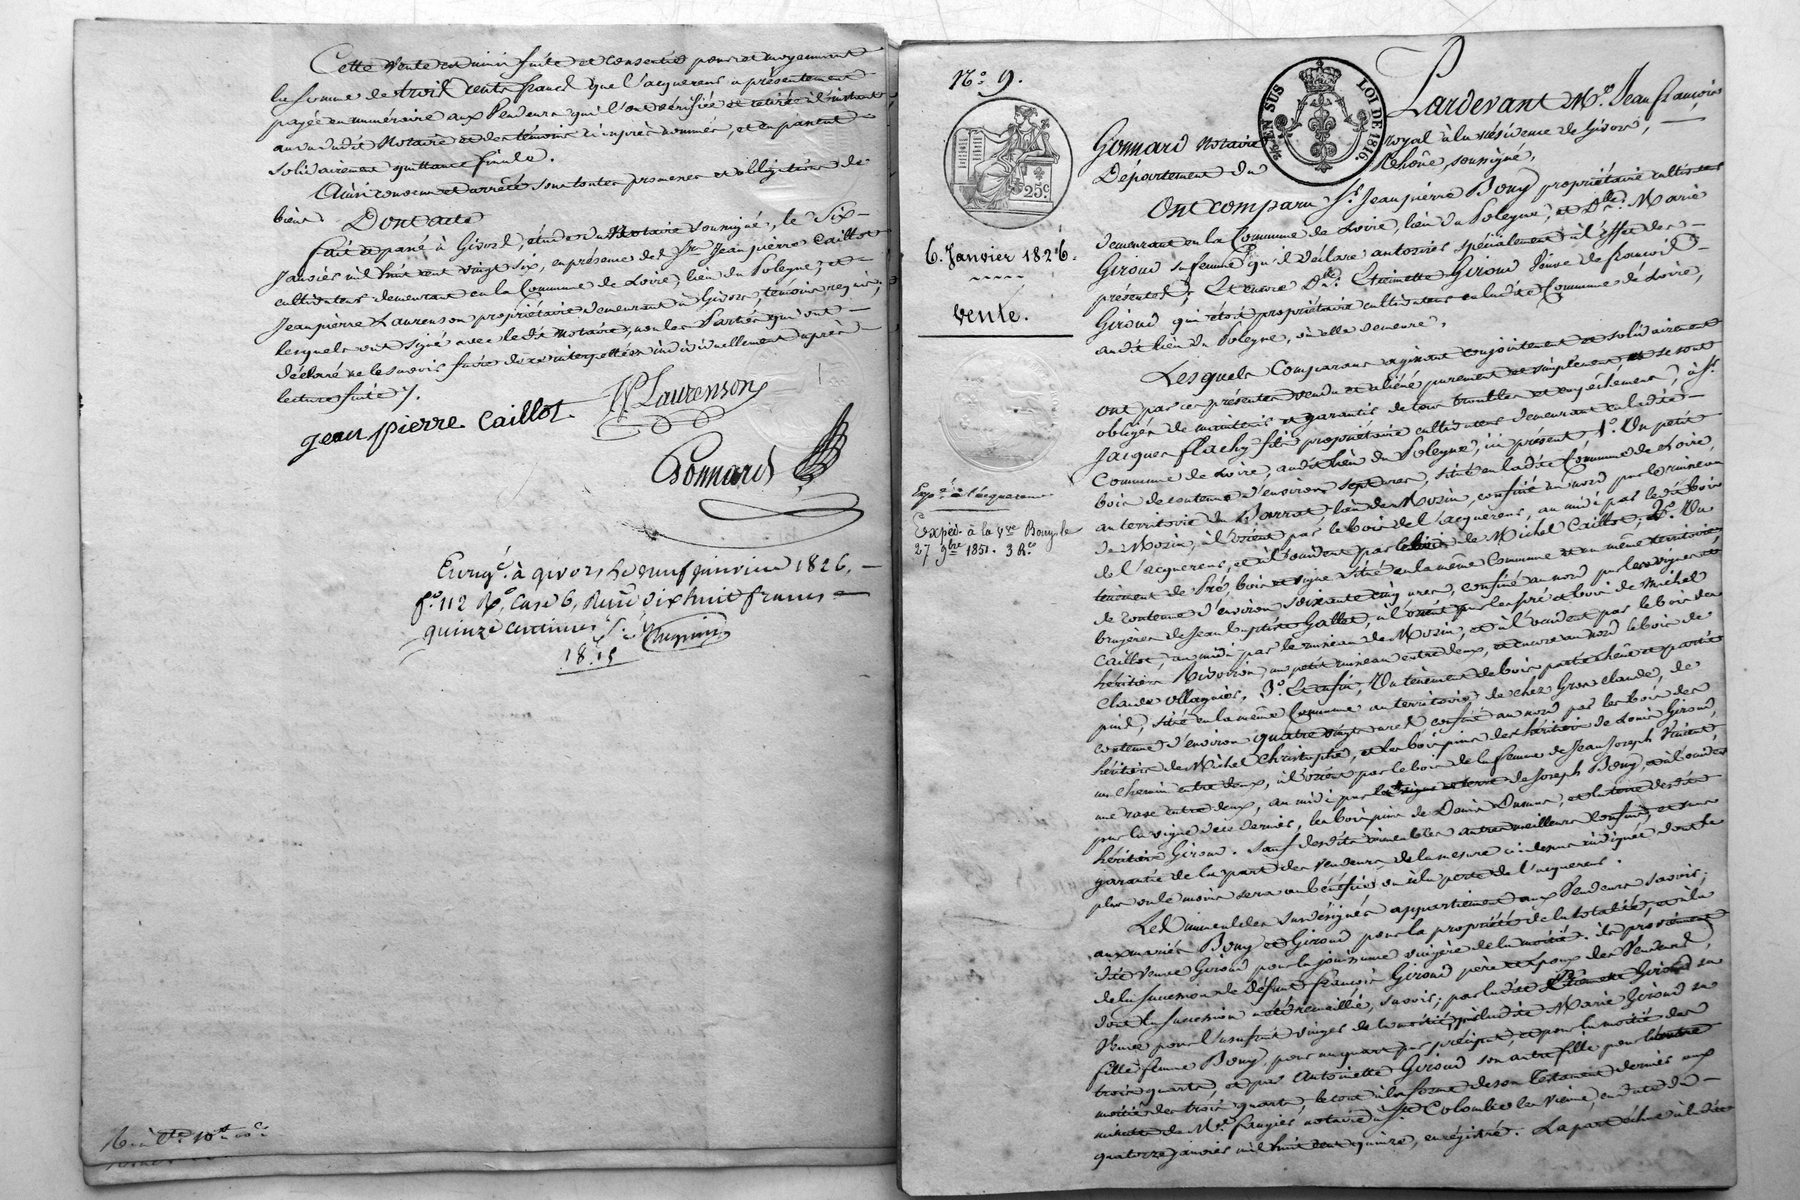 Cette vente est ainsi faite et consentie pour et moyennant
la somme de trois cents francs que l'acquéreur a présentement
payée en numéraire aux Vendeurs qui l'ont vérifiée et retirée à l'instant
au vu dudit Notaire et des témoins ci après nommés, et en passent
solidairement quittance finale.
Ainsi convenu et arrêté sous toutes promesses et obligations de
biens Dont acte
Fait et passé à Givors, étude du Notaire soussigné, le Six
Janvier mil huit cent vingt six, en présence des Srs Jean pierre Caillot
cultivateur demeurant en la Commune de Loire, lieu du Pologne, et
Jean pierre Laurenson propriétaire demeurant à Givors, témoins requis,
lesquels ont signé avec ledit notaire, non les Parties qui ont
déclaré ne le savoir faire de ce interpellées individuellement après
lecture faite /.
jean pierre Caillot
JP Laurenson
Gonnard
Enregé. à givors le neuf janvier 1826,
fo. 112 Ro. Case 6, Reçu dix huit francs
quinze centimes
18.15
No. 9.
EN SUS
LOI DE 1816
25c
6. Janvier 1826.
Vente.
Expé. à l'acquéreur
Expéd. à la Vve Bony le
27 9bre 1851. 3 Ro.
Pardevant Me. Jean François
Gonnard Notaire royal à la résidence de Givors,
Département du Rhône, soussigné,
Ont comparu Sr. Jean pierre Bony propriétaire cultivateur
demeurant en la Commune de Loire, lieu du Pologne, et Dlle. Marie
Giroud sa femme qu'il déclare autoriser spécialement à l'effet des
présentes, Et encore Dlle. Etiennette Giroud Veuve de François
Giroud qui étoit propriétaire cultivateur en ladite Commune de Loire,
audit lieu du Pologne, où elle demeure,
Lesquels Comparans agissant conjointement et solidairement
ont par ces présentes vendu et aliéné purement et simplement et se sont
obligés de maintenir et garantir de tous troubles et empêchements, à Sr.
Jacques Flachy fils propriétaire cultivateur demeurant en ladite
Commune de Loire, audit lieu du Pologne, ici présent, 1o. Un petit
bois de contenue d'environ sept ares, situé en ladite Commune de Loire
au territoire du Barrat lieu de Morin, confiné au nord par le ruisseau
de Morin, à l'orient par le bois de l'acquéreur, au midi par le dit bois
de l'acquéreur, et à l'occident par le bois de Michel Caillot; 2o. Un
tenement de Pré, bois et vigne situé en la même Commune et au même territoire
de contenue d'environ soixante cinq ares, confiné au nord par les vignes et
bruyères de Jean Baptiste Gallot, à l'orient par les pré et bois de Michel
Caillot, au midi par le ruisseau de Morin, et à l'occident par le bois des
héritiers Rivoiron, un petit ruisseau entre deux, et encore au nord le bois de
Claude Ollagnier. 3o. Et enfin, Un tènement de bois partie chêne et partie
pins, situé en la même Commune au territoire de chez Gros claude, de
contenue d'environ quatre vingt ares confiné au nord par les bois des
héritiers de Michel Christophe, et les bois pins des héritiers de Louis Giroud,
un chemin entre deux, à l'orient par le bois de la femme de Jean Joseph Vincent,
une rase entre deux, au midi par les vigne et terre de Joseph Bony, et à l'occident
par la vigne de ce dernier, les bois pins de Denis Dumas, et la terre desdits
héritiers Giroud. Sauf desdits immeubles autres meilleurs confins, et sans
garantie de la part des Vendeurs de la mesure ci dessus indiquée dont le
plus ou le moins sera au bénéfice ou à la perte de l'acquéreur.
Les immeubles susdésignés appartiennent aux Vendeurs savoir;
aux mariés Bony et Giroud pour la propriété de la totalité, et à la
dite veuve Giroud pour la jouissance viagère de la moitié. Ils proviennent
de la succession de défunt François Giroud père et époux des Vendeurs,
dont la succession a été recueillie, savoir; par ladite Etiennette Giroud sa
Veuve pour l'usufruit viager de la moitié, par ladite Marie Giroud sa
fille femme Bony, pour un quart par préciput, et pour la moitié des
trois quarts, et par Antoinette Giroud son autre fille pour l'autre
moitié des trois quarts, le tout à la forme de son Testament dernier aux
minutes de Me. Faugier notaire à Ste Colombe les Vienne, en date du
quatorze janvier mil huit cent quinze, enregistré. La part échue à ladite